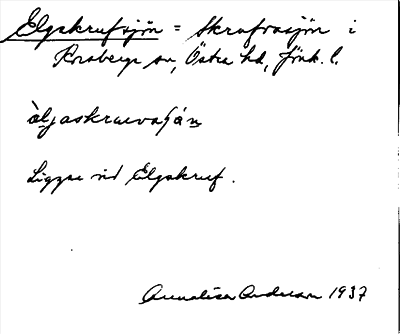 Elgskrufsjön = Skrufvasjön i
Korsberga sn, Östra hd, Jönk. l.
àljaskruvaʃǿn
Ligger vid Elgskruf.
Annalisa Anderson 1937